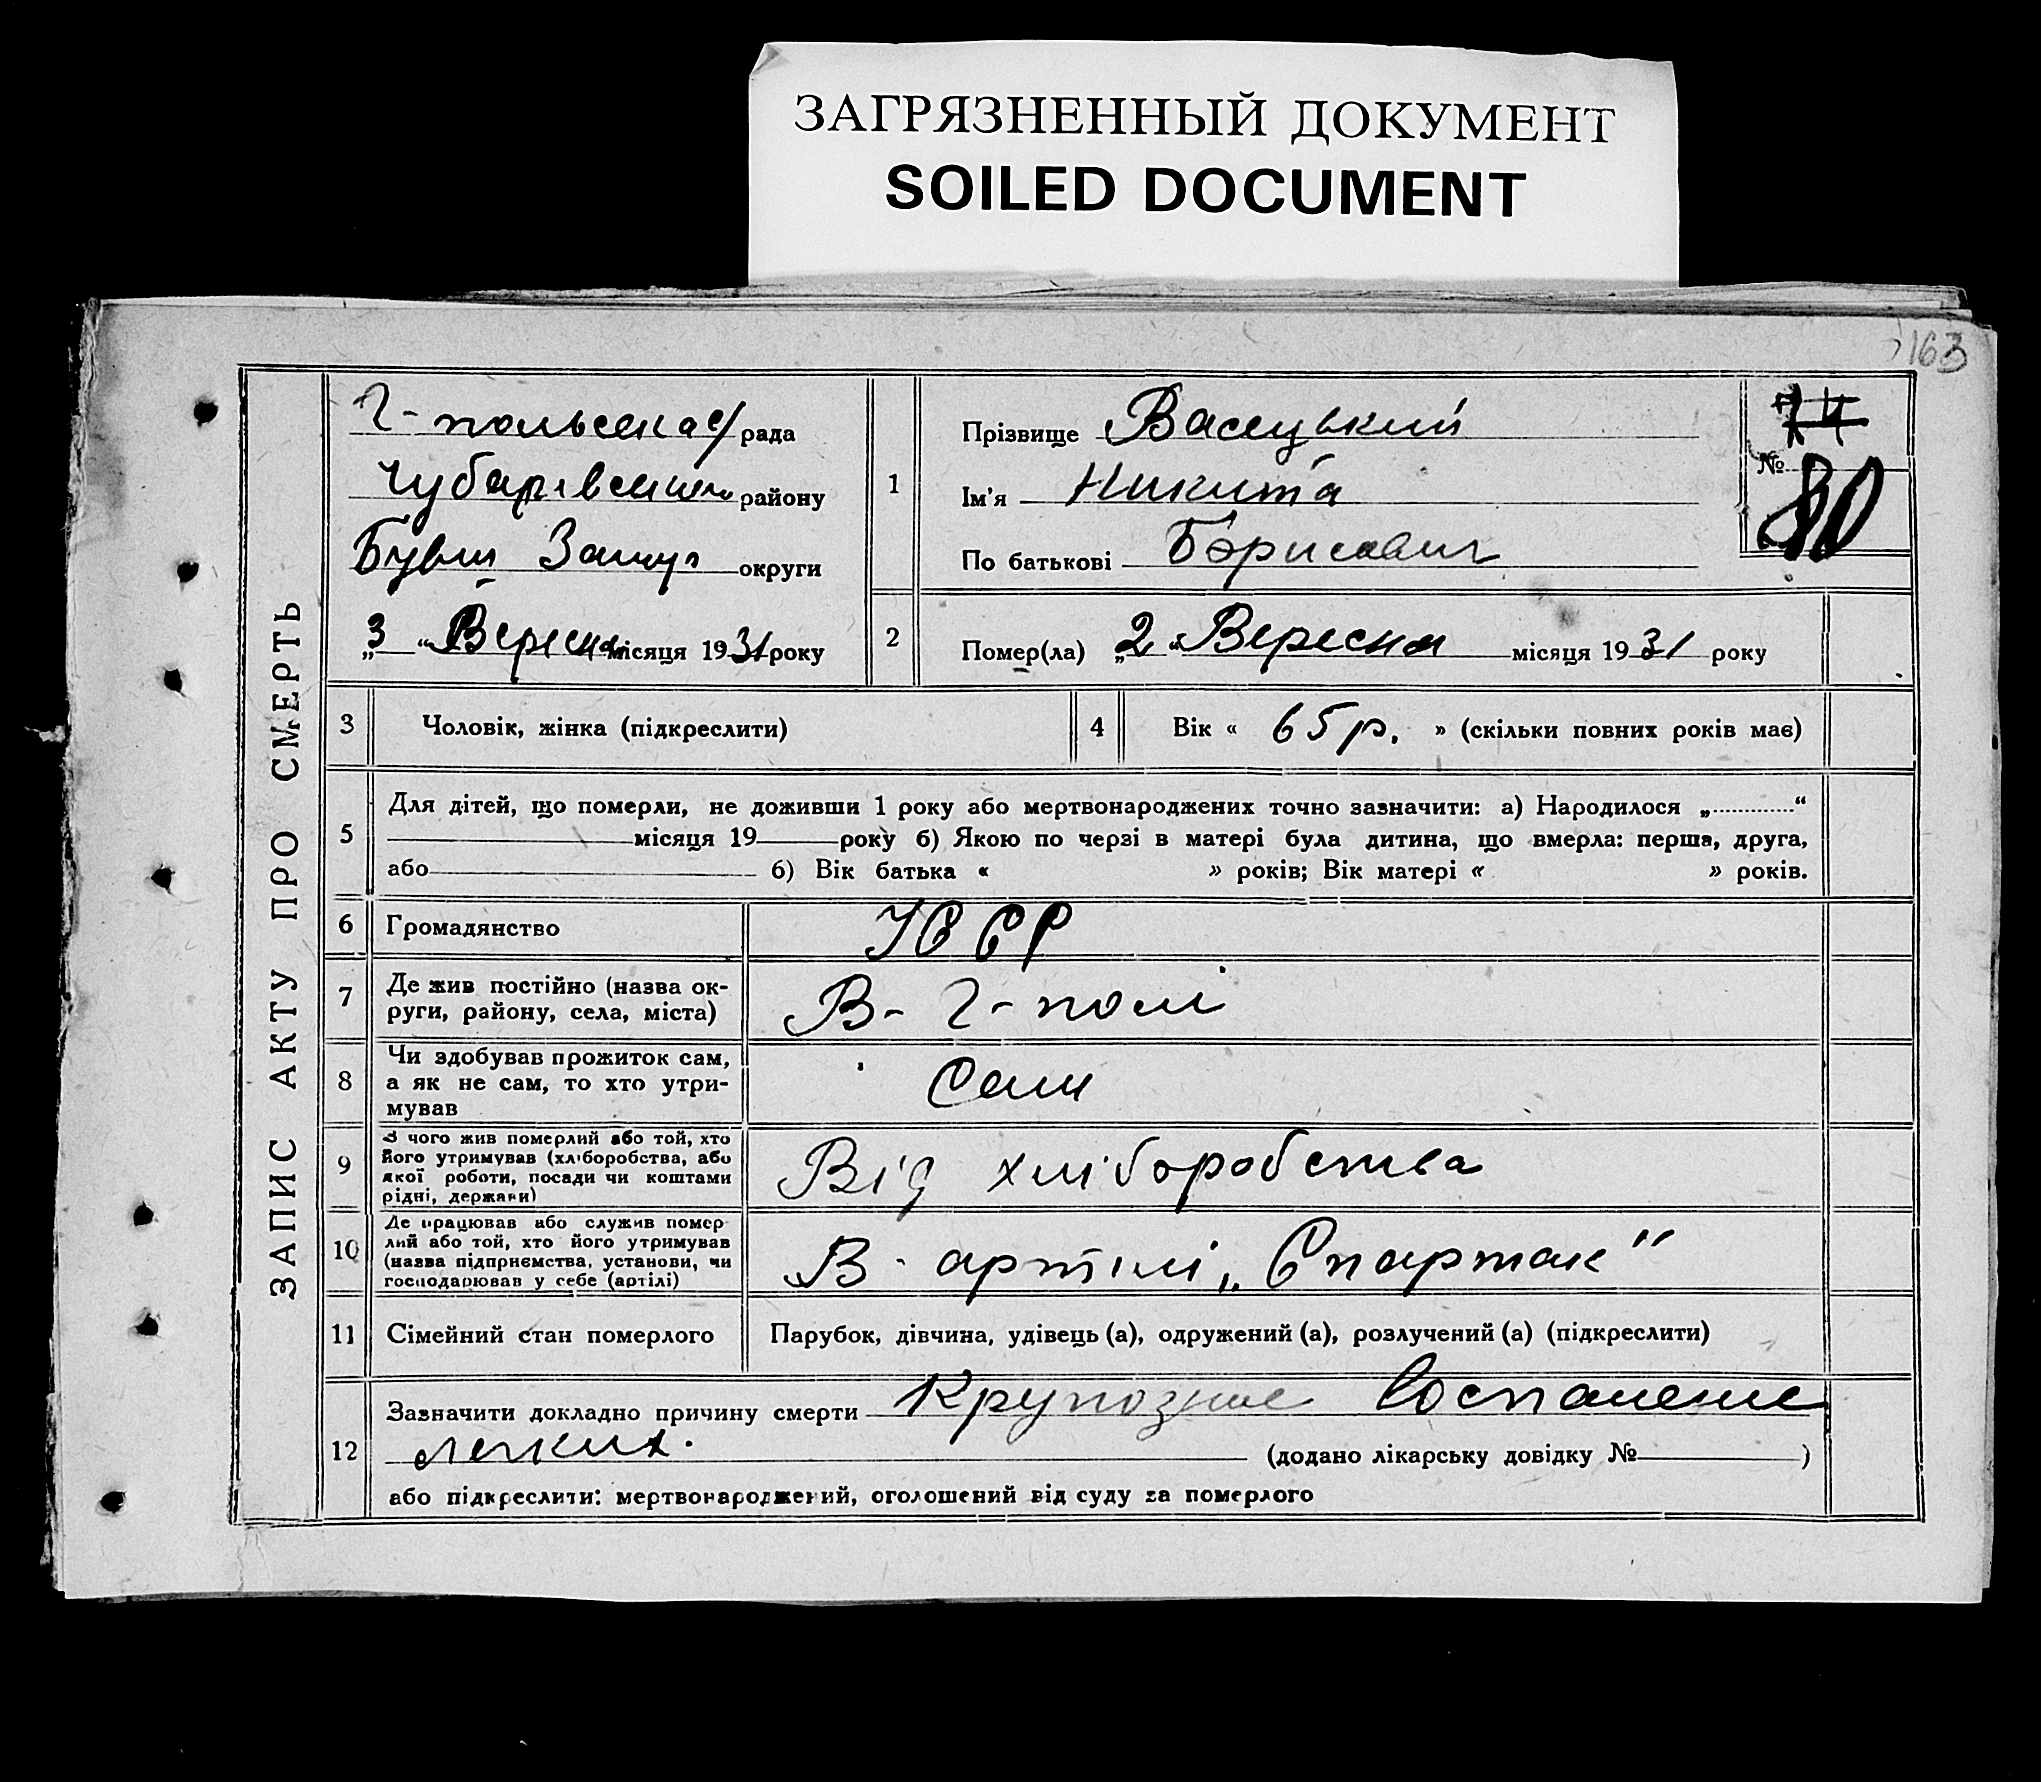 ЗАГРЯЗНЕННЫЙ ДОКУМЕНТ
SOILED DOCUMENT
163
ЗАПИС АКТУ ПРО СМЕРТЬ
Г-польська с/рада
Чубарівського району
Бувш Запор округи
„3“ Вересня місяця 1931 року
1
Прізвище Васецький
Ім'я Никита
По батькові Борисович
74
№ 80
2
Помер(ла) „2“ Вересня місяця 1931 року
3 Чоловік, жінка (підкреслити)
4 Вік « 65 р. » (скільки повних років має)
5
Для дітей, що померли, не доживши 1 року або мертвонароджених точно зазначити: а) Народилося „ “
місяця 19 року б) Якою по черзі в матері була дитина, що вмерла: перша, друга,
або б) Вік батька « » років; Вік матері « » років.
6 Громадянство УССР
7 Де жив постійно (назва ок-
руги, району, села, міста)
В- Г-полі
8 Чи здобував прожиток сам,
а як не сам, то хто утри-
мував
Сам
9 З чого жив померлий або той, хто
його утримував (хліборобства, або
якої роботи, посади чи коштами
рідні, держави)
Від хліборобства
10 Де працював або служив помер
лий або той, хто його утримував
(назва підприємства, установи, чи
господарював у себе (артілі)
В- артілі „Спартак"
11 Сімейний стан померлого Парубок, дівчина, удівець (а), одружений (а), розлучений (а) (підкреслити)
12 Зазначити докладно причину смерти Крупозное воспаление
легких. (додано лікарську довідку № )
або підкреслити: мертвонароджений, оголошений від суду за померлого